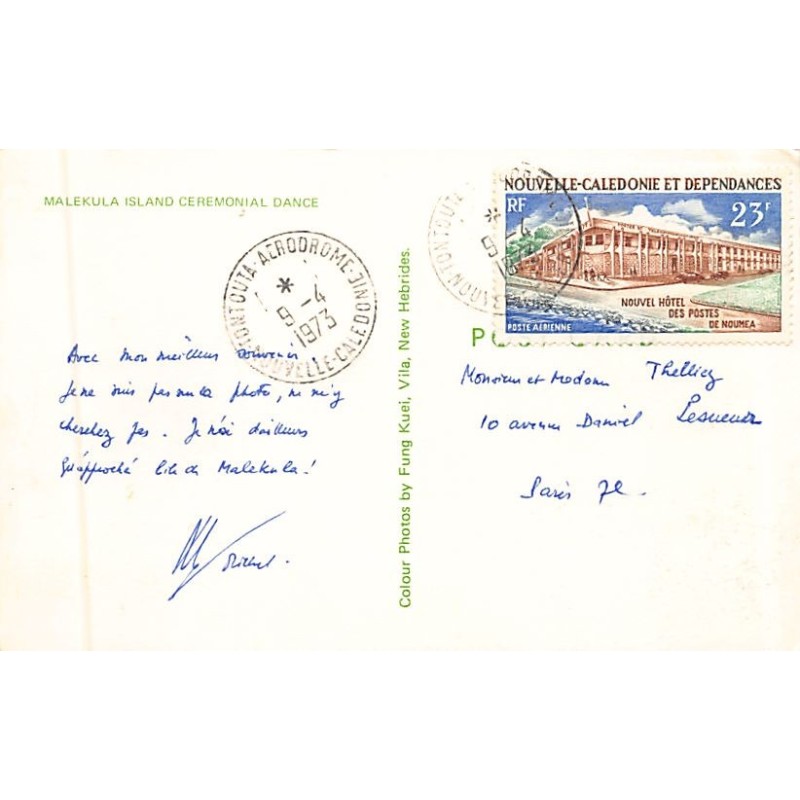 MALEKULA ISLAND CEREMONIAL DANCE
TONTOUTA-AERODROME
* 9-4
1973
NOUVELLE-CALEDONIE
Avec mon meilleur souvenir.
Je ne suis pas sur la photo, ne m'y
cherchez pas. Je n'ai d'ailleurs
qu'approché l'île de Malekula!
Colour Photos by Fung Kuei, Vila, New Hebrides.
NOUVELLE-CALEDONIE ET DEPENDANCES
RF
23F
NOUVEL HÔTEL
DES POSTES
DE NOUMEA
POSTE AÉRIENNE
TONTOUTA
* 9-4
Monsieur et Madame Thelliez
10 avenue Daniel Lesueur
Paris 7e